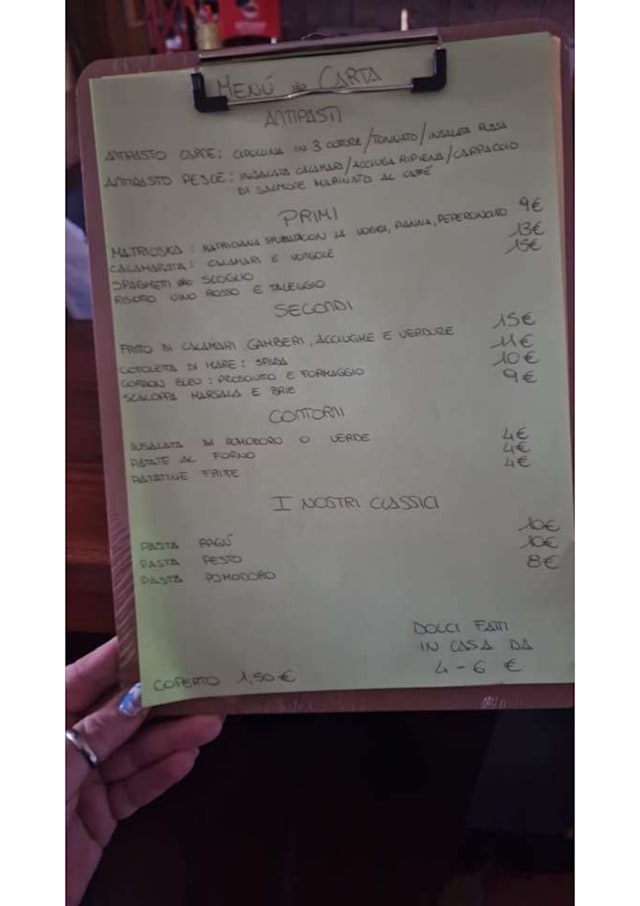 MENÙ alla CARTA
ANTIPASTI
ANTIPASTO CARNE: CIPOLLINA IN 3 COTTURE/TONNATO/INSALATA RUSSA
ANTIPASTO PESCE: INSALATA CALAMARI/ACCIUGA RIPIENA/CARPACCIO
DI SALMONE MARINATO AL CAFFÈ
PRIMI
MATRIOSKA: MATRICIANA CON LA VODKA, PANNA, PEPERONCINO 9€
CALAMARATA: CALAMARI E VONGOLE 13€
SPAGHETTI allo SCOGLIO 15€
RISOTTO VINO ROSSO E TALEGGIO
SECONDI
FRITTO DI CALAMARI, GAMBERI, ACCIUGHE E VERDURE 15€
COTOLETTA DI MARE: SPADA 11€
CORDON BLEU: PROSCIUTTO E FORMAGGIO 10€
SCALOPPA MARSALA E BRIE 9€
CONTORNI
INSALATA DI POMODORO O VERDE 4€
PATATE AL FORNO 4€
PATATINE FRITE 4€
I NOSTRI CLASSICI
PASTA RAGÙ 10€
PASTA PESTO 10€
PASTA POMODORO 8€
DOLCI FATTI
IN CASA DA
4-6 €
COPERTO 1,50€